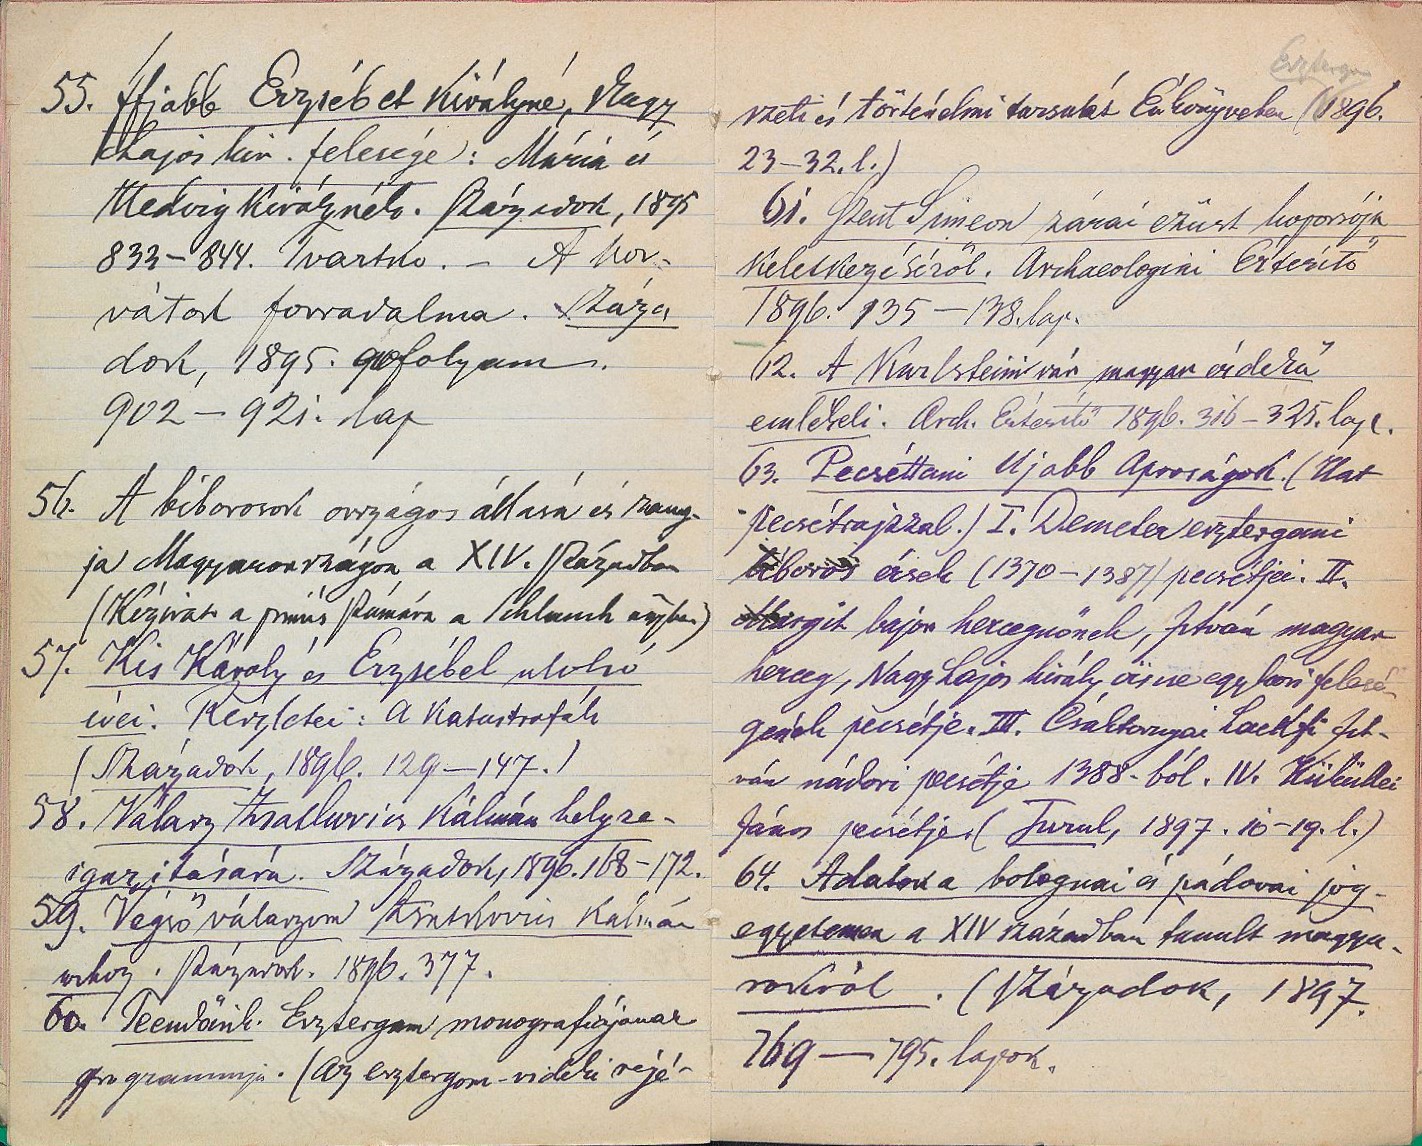 55. Ifjabb Erzsébet királyné, Nagy
Lajos kir. felesége: Mária és
Hedvig királynék. Századok, 1895
833–844. Ivartko. – A hor-
vátok forradalma. Száza
dok, 1895. folyam.
902–921. lap
56. A biborosok országos állása és rang-
ja Magyarországon a XIV. Században
(Kézirat a primás számára a Schlauch
57. Kis Károly és Erzsébet utolsó
évei. Részletei: A Katastrofák
(Századok, 1896. 129–147.)
58. Válasz Kálmán helyre-
igazitására. Századok, 1896. 168–172.
59. Végső válaszom Kálmán
urhoz. Századok. 1896. 377.
60. Teendőink. Esztergam monografiájának
programmja. (Az esztergom-vidéki régé-
Esztergom
szeti és történelmi tarsulat Évkönyveben (1896.
23–32. l.)
61. Szent Simeon zárai ezüst koporsója
keletkezéséről. Archaeologiai Értesítő
1896. 135–138. lap.
62. A Karlsteini vár magyar érdekű
emlékei. Arch. Értesítő 1896. 316–325. lap.
63. Pecséttani Ujabb Apróságok. (Hat
pecsétrajzzal.) I. Demeter esztergomi
biboros érsek (1370–1387) pecsétjei. II.
Margit bajor hercegnőnek, István magyar
herceg, Nagy Lajos király öcscse egykori felesé-
gének pecsétje. III. Csáktornyai Lackfi Ist-
ván nádori pecsétje 1388-ból. IV. Küküllei
János pecsétje. (Turul, 1897. 10–19. l.)
64. Adatok a bolognai és pádovai jog-
egyetemen a XIV században tanult magya-
rokról. (Századok, 1897.
769–795. lapok.